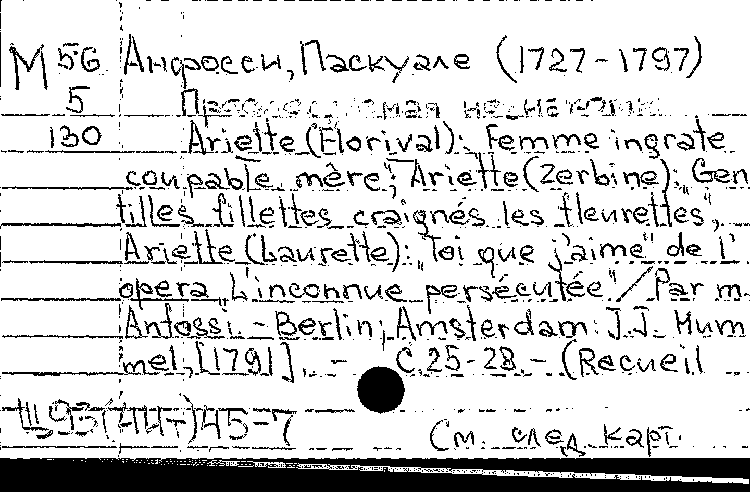 М 56 Анфосси, Паскуале (1727-1797)
5 Преследуемая незнакомка
130 Ariette (Florival): „Femme ingrate
coupable mère"; Ariette (Zerbine): „Gen
tilles fillettes craignés les fleurettes",
Ariette (Laurette): „Toi que j'aime" de l'
opera „L'inconnue persécutée" / Par m.
Anfossi. - Berlin; Amsterdam: J.J. Hum
mel, [1791]. - С. 25-28. - (Recueil
Ш 93(44т)45-7 См. след. карт.